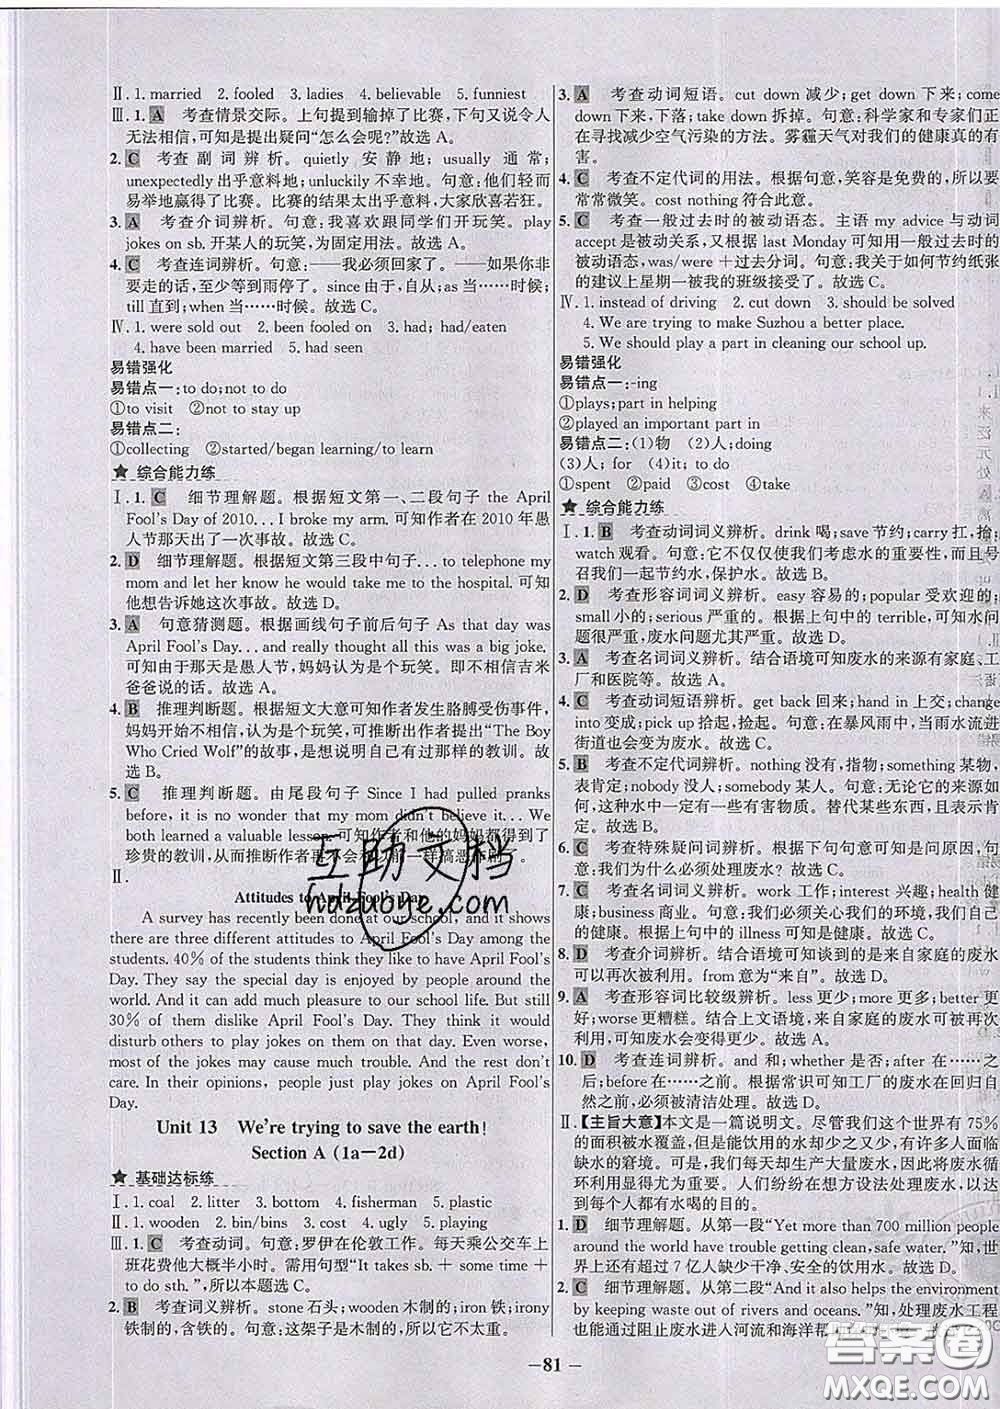 Ⅱ. 1. married  2. fooled  3. ladies  4. believable  5. funniest
Ⅲ. 1. A  考查情景交际。上句提到输掉了比赛,下句又说令人
无法相信,可知是提出疑问“怎么会呢?”故选 A。
2. C  考查副词辨析。quietly 安静地;usually 通常;
unexpectedly 出乎意料地;unluckily 不幸地。句意:他们轻
易举地赢得了比赛。比赛的结果太出乎意料,大家欣喜若狂。
3. A  考查介词辨析。句意:我喜欢跟同学们开玩笑。play
jokes on sb. 开某人的玩笑,为固定用法。故选 A。
4. C  考查连词辨析。句意:——我必须回家了。——如果你非
要走的话,至少等到雨停了。since 由于,自从;as 当……时候;
till 直到;when 当……时候。故选 C。
Ⅳ. 1. were sold out  2. been fooled on  3. had; had/eaten
4. have been married  5. had seen
易错强化
易错点一:to do;not to do
①to visit  ②not to stay up
易错点二:
①collecting  ②started/began learning/to learn
★ 综合能力练
Ⅰ. 1. C  细节理解题。根据短文第一、二段句子 the April
Fool's Day of 2010... I broke my arm. 可知作者在 2010 年愚
人节那天出了一次事故。故选 C。
2. D  细节理解题。根据短文第三段中句子... to telephone my
mom and let her know he would take me to the hospital. 可知
他想告诉她这次事故。故选 D。
3. A  句意猜测题。根据画线句子前后句子 As that day was
April Fool's Day and really thought all this was a big joke.
可知由于那天是愚人节,妈妈认为这是个玩笑。即不相信吉米
爸爸说的话。故选 A。
4. B  推理判断题。根据短文大意可知作者发生胳膊受伤事件,
妈妈开始不相信,认为是个玩笑,可推断出作者提出“The Boy
Who Cried Wolf”的故事,是想说明自己有过那样的教训。故
选 B。
5. C  推理判断题。由尾段句子 Since I had pulled pranks
before, it is no wonder that my mom didn't believe it... We
both learned a valuable lesson. 可知作者和他的妈妈都得到了
珍贵的教训,从而推断作者再不会和以前一样搞恶作剧了。
Ⅱ.
Attitudes to April Fool's Day
A survey has recently been done at our school, and it shows
there are three different attitudes to April Fool's Day among the
students. 40% of the students think they like to have April Fool's
Day. They say the special day is enjoyed by people around the
world. And it can add much pleasure to our school life. But still
30% of them dislike April Fool's Day. They think it would
disturb others to play jokes on them on that day. Even worse,
most of the jokes may cause much trouble. And the rest don't
care. In their opinions, people just play jokes on April Fool's
Day.
Unit 13  We're trying to save the earth!
Section A (1a—2d)
★ 基础达标练
Ⅰ. 1. coal  2. litter  3. bottom  4. fisherman  5. plastic
Ⅱ. 1. wooden  2. bin/bins  3. cost  4. ugly  5. playing
Ⅲ. 1. C  考查动词。句意:罗伊在伦敦工作。每天乘公交车上
班花费他大概半小时。需用句型“It takes sb. + some time +
to do sth.”,所以本题选 C。
2. B  考查词义辨析。stone 石头;wooden 木制的;iron 铁;irony
铁制的,含铁的。句意:这架子是木制的,所以它不太重。
3. A  考查动词短语。cut down 减少;get down 下来;come
down 下来,下落;take down 拆掉。句意:科学家和专家们正
在寻找减少空气污染的方法。雾霾天气对我们的健康真的有
害。
4. C  考查不定代词的用法。根据句意,笑容是免费的,所以要
常常微笑。cost nothing 符合此意。
5. C  考查一般过去时的被动语态。主语 my advice 与动词
accept 是被动关系,又根据 last Monday 可知用一般过去时的
被动语态,was/were +过去分词。句意:我关于如何节约纸张
的建议上星期一被我的班级接受了。故选 C。
Ⅳ. 1. instead of driving  2. cut down  3. should be solved
4. We are trying to make Suzhou a better place.
5. We should play a part in cleaning our school up.
易错强化
易错点一:-ing
①plays;part in helping
②played an important part in
易错点二:(1)物  (2)人;doing
(3)人; for  (4)it; to do
①spent  ②paid  ③cost  ④take
★ 综合能力练
Ⅰ. 1. B  考查动词词义辨析。drink 喝;save 节约;carry 扛,抬;
watch 观看。句意:它不仅仅使我们考虑水的重要性,而且号
召我们一起节约水,保护水。故选 B。
2. D  考查形容词词义辨析。easy 容易的;popular 受欢迎的;
small 小的;serious 严重的。根据上句中的 terrible,可知水问
题很严重,废水问题尤其严重。故选 D。
3. A  考查名词词义辨析。结合语境可知废水的来源有家庭、工
厂和医院等。故选 A。
4. C  考查动词短语辨析。get back 回来;hand in 上交;change
into 变成;pick up 拾起,捡起。句意:在暴风雨中,当雨水流进
街道也会变为废水。故选 C。
5. B  考查不定代词辨析。nothing 没有,指物;something 某物,
表肯定;nobody 没人;somebody 某人。句意:无论它的来源
如何,水中一定有一些有害物质。替代某些东西,且表示肯
定。故选 B。
6. C  考查特殊疑问词辨析。根据下句句意可知是问原因。句
意:我们为什么必须处理废水?故选 C。
7. C  考查名词词义辨析。work 工作;interest 兴趣;health 健
康;business 商业。句意:我们必须关心我们的环境,我们自己
的健康。根据上句中的 illness 可知是健康。故选 C。
8. D  考查介词辨析。结合语境可知谈到的是来自家庭的废水
可以再次被利用。from 意为“来自”。故选 D。
9. A  考查形容词比较级辨析。less 更少;more 更多;better 更
好;worse 更糟糕。结合上文语境,来自家庭的废水可被再次
利用,可知废水会变得更少。故选 A。
10. D  考查连词辨析。and 和;whether 是否;after 在……之
后;before 在……之前。根据常识可知工厂的废水在回归自
然之前,必须被清洁处理。故选 D。
Ⅱ. 【主旨大意】本文是一篇说明文。尽管我们这个世界有 75%
的面积被水覆盖,但是能饮用的水却少之又少,有许多人面临
缺水的窘境。而我们每天却生产大量废水,这些水无法饮用
循环利用。人们纷纷在想方设法处理废水,使水可饮用,
达到每个人都有水喝的目的。
1. D  细节理解题。从第一段“Yet more than 700 million people
around the world have trouble getting clean, safe water.”知,世
界还有超过 7 亿人缺少干净、安全的饮用水。故选 D。
2. C  细节理解题。从第二段“And it also helps the environment
by keeping waste out of rivers and oceans.”知,处理废水工程
也能通过阻止废水进入河流和海洋帮
— 81 —
互助文档
hdzuoye.com
答案圈
MXQE.COM